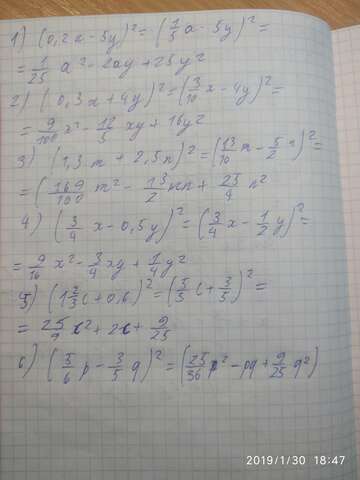 1) (0,2a - 5y)² = (1/5 a - 5y)² =
= 1/25 a² - 2ay + 25y²
2) (0,3x + 4y)² = (3/10 x - 4y)² =
= 9/100 x² - 12/5 xy + 16y²
3) (1,3m + 2,5n)² = (13/10 m - 5/2 n)² =
= (169/100 m² - 13/2 mn + 25/4 n²
4) (3/4 x - 0,5y)² = (3/4 x - 1/2 y)² =
= 9/16 x² - 3/4 xy + 1/4 y²
5) (1 2/3 c + 0,6)² = (5/3 c + 3/5)² =
= 25/9 c² + 2c + 9/25
6) (5/6 p - 3/5 q)² = (25/36 p² - pq + 9/25 q²)
2019/1/30 18:47